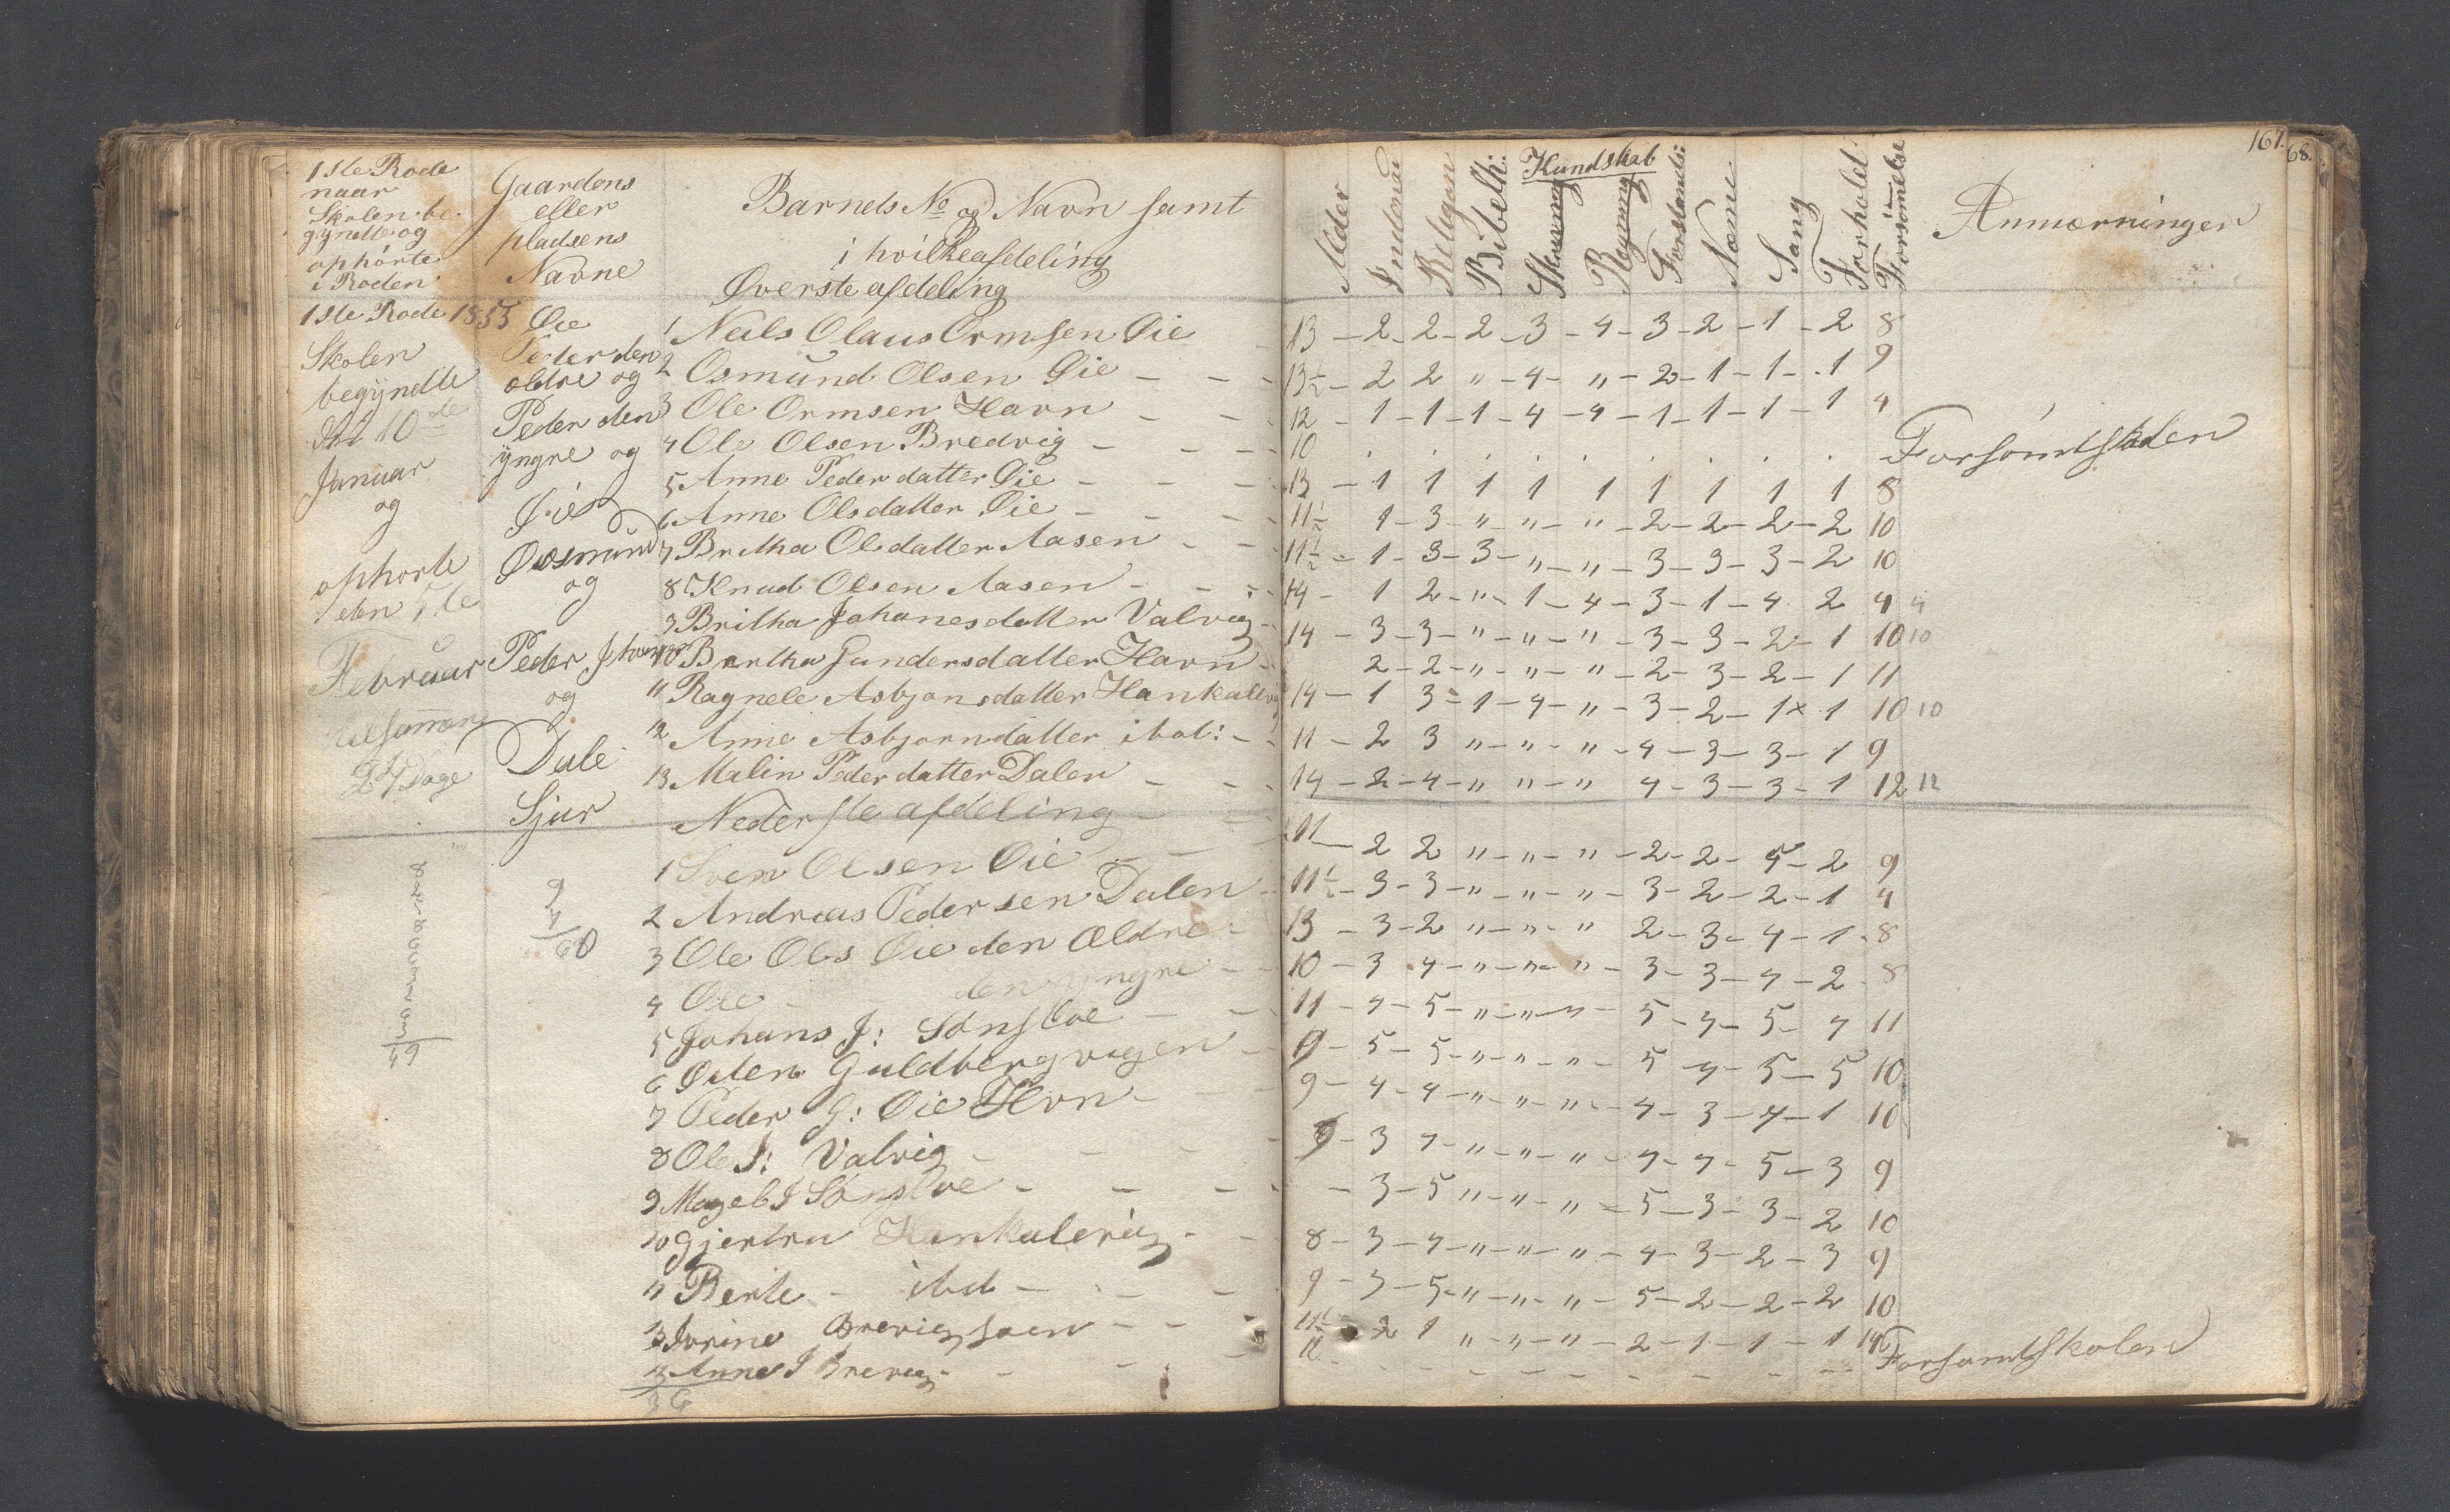 1ste Rode
naar
Skolen be-
gyndte og
ophörte
i Roden
Gaardens
eller
pladsens
Navne
Barnets No og Navn samt
i hvilke afdeling
Øverste afdeling
1ste Rode 1853
Skolen
begyndte
10de
Januar
og
ophorte
den
Februar
tilsamen
Dage
Øie
Peder den
ældre og
Peder den
yngre og
Øie
Oosmund
og
Peder
og
Dale
Sjur
1 Neils Olaus Ormsen Øie
2 Osmund Olsen Øie
3 Ole Ormsen Havn
4 Ole Olsen Bredvig
5 Anne Peder datter Øie
6 Anne Olsdatter Øie
7 Britha Olsdatter Aasen
8 Knud Olsen Aasen
9 Britha Johanesdatter Valvig
10 Bertha Gundersdatter Havn
11 Ragnele Asbjonsdatter Hankalvig
12 Anne Asbjorndatter ibot:
13 Malin Peder datter Dalen
Nederste afdeling
1 Sven Olsen Øie
2 Andreas Pedersen Dalen
3 Ole Ols Øie den Ældre
4 Ole - den yngre
5 Johans J: Sönsloe
6 Guldbergvigen
7 Peder G: Øie Hvn
8 Ole J: Valvig
9 J Sönsloe
10 Gjertru Hankalvig
11 Berte - ibd
Brevig
13 Anne J Brevig
36
9
60
49
167.
68.
Alder
Religion
Bibelh:
Kundskab
Skrivning
Regning
Forstands:
Næme
Sang
Forhold
Forsömelse
Anmærninger
13 - 2 - 2 - 2 - 3 - 4 - 3 - 2 - 1 - 2 8
13½ - 2 2 " - 4 - " - 2 - 1 - 1 - 1 9
12 - 1 - 1 - 1 - 4 - 4 - 1 - 1 - 1 - 1 4
10 . . . . . . . . . Forsömt Skolen
13 - 1 1 1 1 1 1 1 1 1 8
11½ 1 - 3 - " - " - " - 2 - 2 - 2 - 2 10
11½ - 1 - 3 - 3 - " - " - 3 - 3 - 3 - 2 10
14 - 1 2 - " - 1 - 4 - 3 - 1 - 4 2 4 4
14 - 3 - 3 - " - " - " - 3 - 3 - 2 - 1 10 10
2 - 2 - " - " - " - 2 - 3 - 2 - 1 11
14 - 1 3 - 1 - 4 - " - 3 - 2 - 1 x 1 10 10
11 - 2 3 " - " - " - 4 - 3 - 3 - 1 9
14 - 2 - 4 - " " - " 4 - 3 - 3 - 1 12 12
11 - 2 2 " - " - " - 2 - 2 - 4 - 2 9
11½ - 3 - 3 - " - " - " - 3 - 2 - 2 - 1 4
13 - 3 - 2 " - " - " 2 - 3 - 4 - 1 - 8
10 - 3 4 - " - " - " - 3 - 3 - 4 - 2 - 8
11 - 4 - 5 - " - " - " - 5 - 4 - 5 - 4 11
9 - 5 - 5 - " - " - " - 5 - 4 - 5 - 5 10
9 - 4 - 4 - " - " - " - 4 - 3 - 4 - 1 10
9 - 3 4 - " - " - " - 4 - 4 - 5 - 3 9
- 3 - 5 " - " - " - 5 - 3 - 3 - 2 10
8 - 3 - 4 - " - " - " - 4 - 3 - 2 - 3 9
9 - 3 - 5 - " - " - " - 5 - 2 - 2 - 2 10
11½ - 2 1 " - " - " - 2 - 1 - 1 - 1
12 - - - - - - - - - Forsomt Skolen